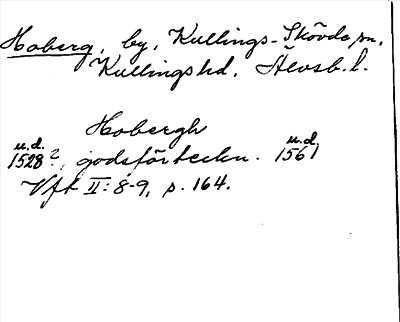 Hoberg, by, Kullings-Skövde sn,
Kullings hd, Älvsb. l.
Hobergh
u.d. u.d.
1528?, godsförteckn. 1561
Vft II: 8-9, p. 164.